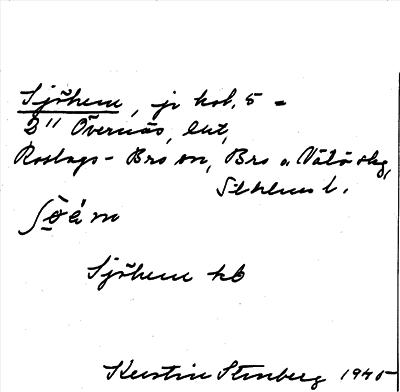 Sjöhem, jr kol. 5 =
2" Övernäs, lht,
Roslags-Bro sn, Bro o. Vätö skg,
Sthlms l.
Sjöhem kb
Kerstin Stenberg 1945